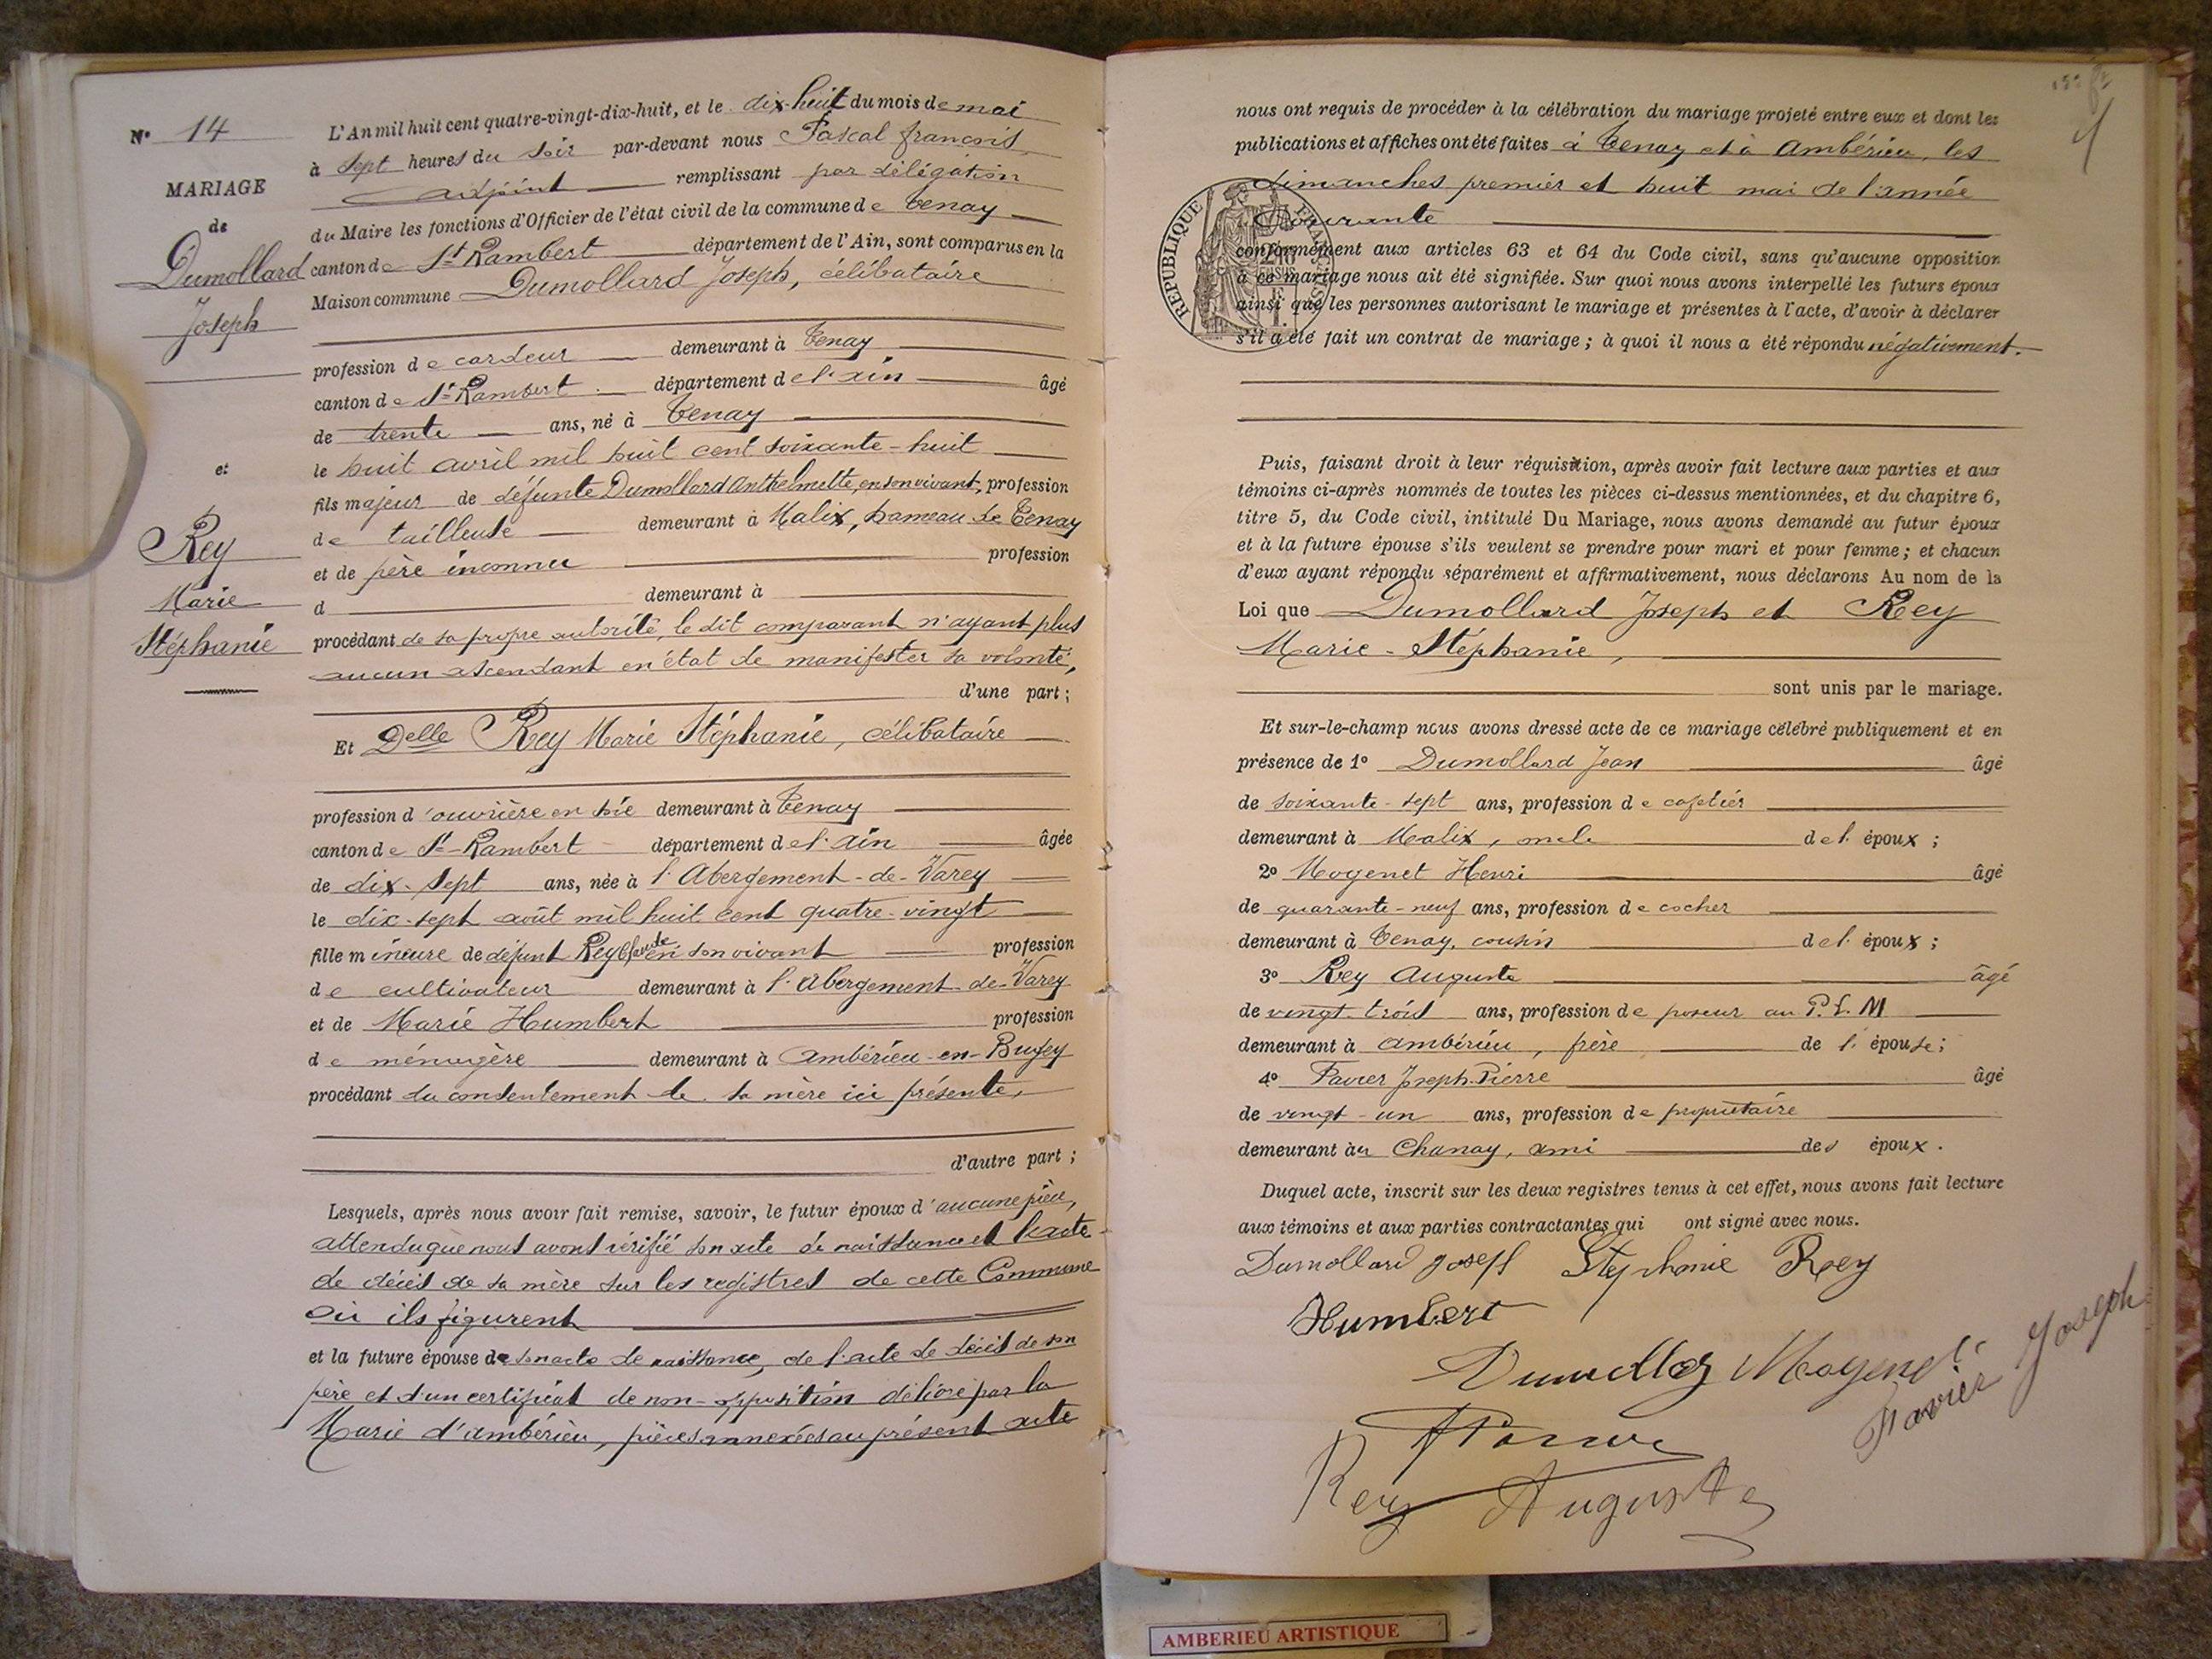 N° 14
MARIAGE
de
Dumollard
Joseph
et
Rey
Marie
Stéphanie
L'An mil huit cent quatre-vingt-dix-huit, et le dix-huit du mois de mai
à sept heures du soir par-devant nous Pascal françois
adjoint remplissant par délégation
du Maire les fonctions d'Officier de l'état civil de la commune de Tenay
canton de St Rambert département de l'Ain, sont comparus en la
Maison commune Dumollard Joseph, célibataire
profession de cardeur demeurant à Tenay
canton de St Rambert département de l'ain âgé
de trente ans, né à Tenay
le huit avril mil huit cent soixante-huit
fils majeur de défunte Dumollard Anthelmette, en son vivant, profession
de tailleuse demeurant à Malix, hameau de Tenay
et de père inconnu profession
d demeurant à
procédant de sa propre autorité, le dit comparant n'ayant plus
aucun ascendant en état de manifester sa volonté,
d'une part ;
Et Delle Rey Marie Stéphanie, célibataire
profession d'ouvrière en soie demeurant à Tenay
canton de St-Rambert département de l'ain âgée
de dix-sept ans, née à l'Abergement-de-Varey
le dix-sept août mil huit cent quatre-vingt
fille mineure de défunt Rey Claude en son vivant profession
de cultivateur demeurant à l'Abergement-de-Varey
et de Marie Humbert profession
de ménagère demeurant à Ambérieu-en-Bugey
procédant du consentement de sa mère ici présente,
d'autre part ;
Lesquels, après nous avoir fait remise, savoir, le futur époux d'aucune pièce,
attendu que nous avons vérifié son acte de naissance et l'acte
de décès de sa mère sur les registres de cette Commune
où ils figurent
et la future épouse de son acte de naissance, de l'acte de décès de son
père et d'un certificat de non-opposition délivré par la
Marie d'ambérieu, pièces annexées au présent acte
nous ont requis de procéder à la célébration du mariage projeté entre eux et dont les
publications et affiches ont été faites à Tenay et à Ambérieu, les
dimanches premier et huit mai de l'année
Courante
REPUBLIQUE FRANCAISE
conformément aux articles 63 et 64 du Code civil, sans qu'aucune opposition
à ce mariage nous ait été signifiée. Sur quoi nous avons interpellé les futurs époux
ainsi que les personnes autorisant le mariage et présentes à l'acte, d'avoir à déclarer
s'il a été fait un contrat de mariage ; à quoi il nous a été répondu négativement.
Puis, faisant droit à leur réquisition, après avoir fait lecture aux parties et aux
témoins ci-après nommés de toutes les pièces ci-dessus mentionnées, et du chapitre 6,
titre 5, du Code civil, intitulé Du Mariage, nous avons demandé au futur époux
et à la future épouse s'ils veulent se prendre pour mari et pour femme ; et chacun
d'eux ayant répondu séparément et affirmativement, nous déclarons Au nom de la
Loi que Dumollard Joseph et Rey
Marie-Stéphanie,
sont unis par le mariage.
Et sur-le-champ nous avons dressé acte de ce mariage célébré publiquement et en
présence de 1° Dumollard Jean âgé
de soixante-sept ans, profession de cafetier
demeurant à Malix, oncle de l'époux ;
2° Mogenet Henri âgé
de quarante-neuf ans, profession de cocher
demeurant à Tenay, cousin de l'époux ;
3° Rey Auguste âgé
de vingt-trois ans, profession de poseur au P.L.M
demeurant à Ambérieu, frère de l'épouse ;
4° Favier Joseph-Pierre âgé
de vingt-un ans, profession de propriétaire
demeurant au Chanay, ami des époux.
Duquel acte, inscrit sur les deux registres tenus à cet effet, nous avons fait lecture
aux témoins et aux parties contractantes qui ont signé avec nous.
Dumollard Joseph Stephanie Rey
Humbert
Mogenet Favier Joseph
Rey Auguste
AMBERIEU ARTISTIQUE